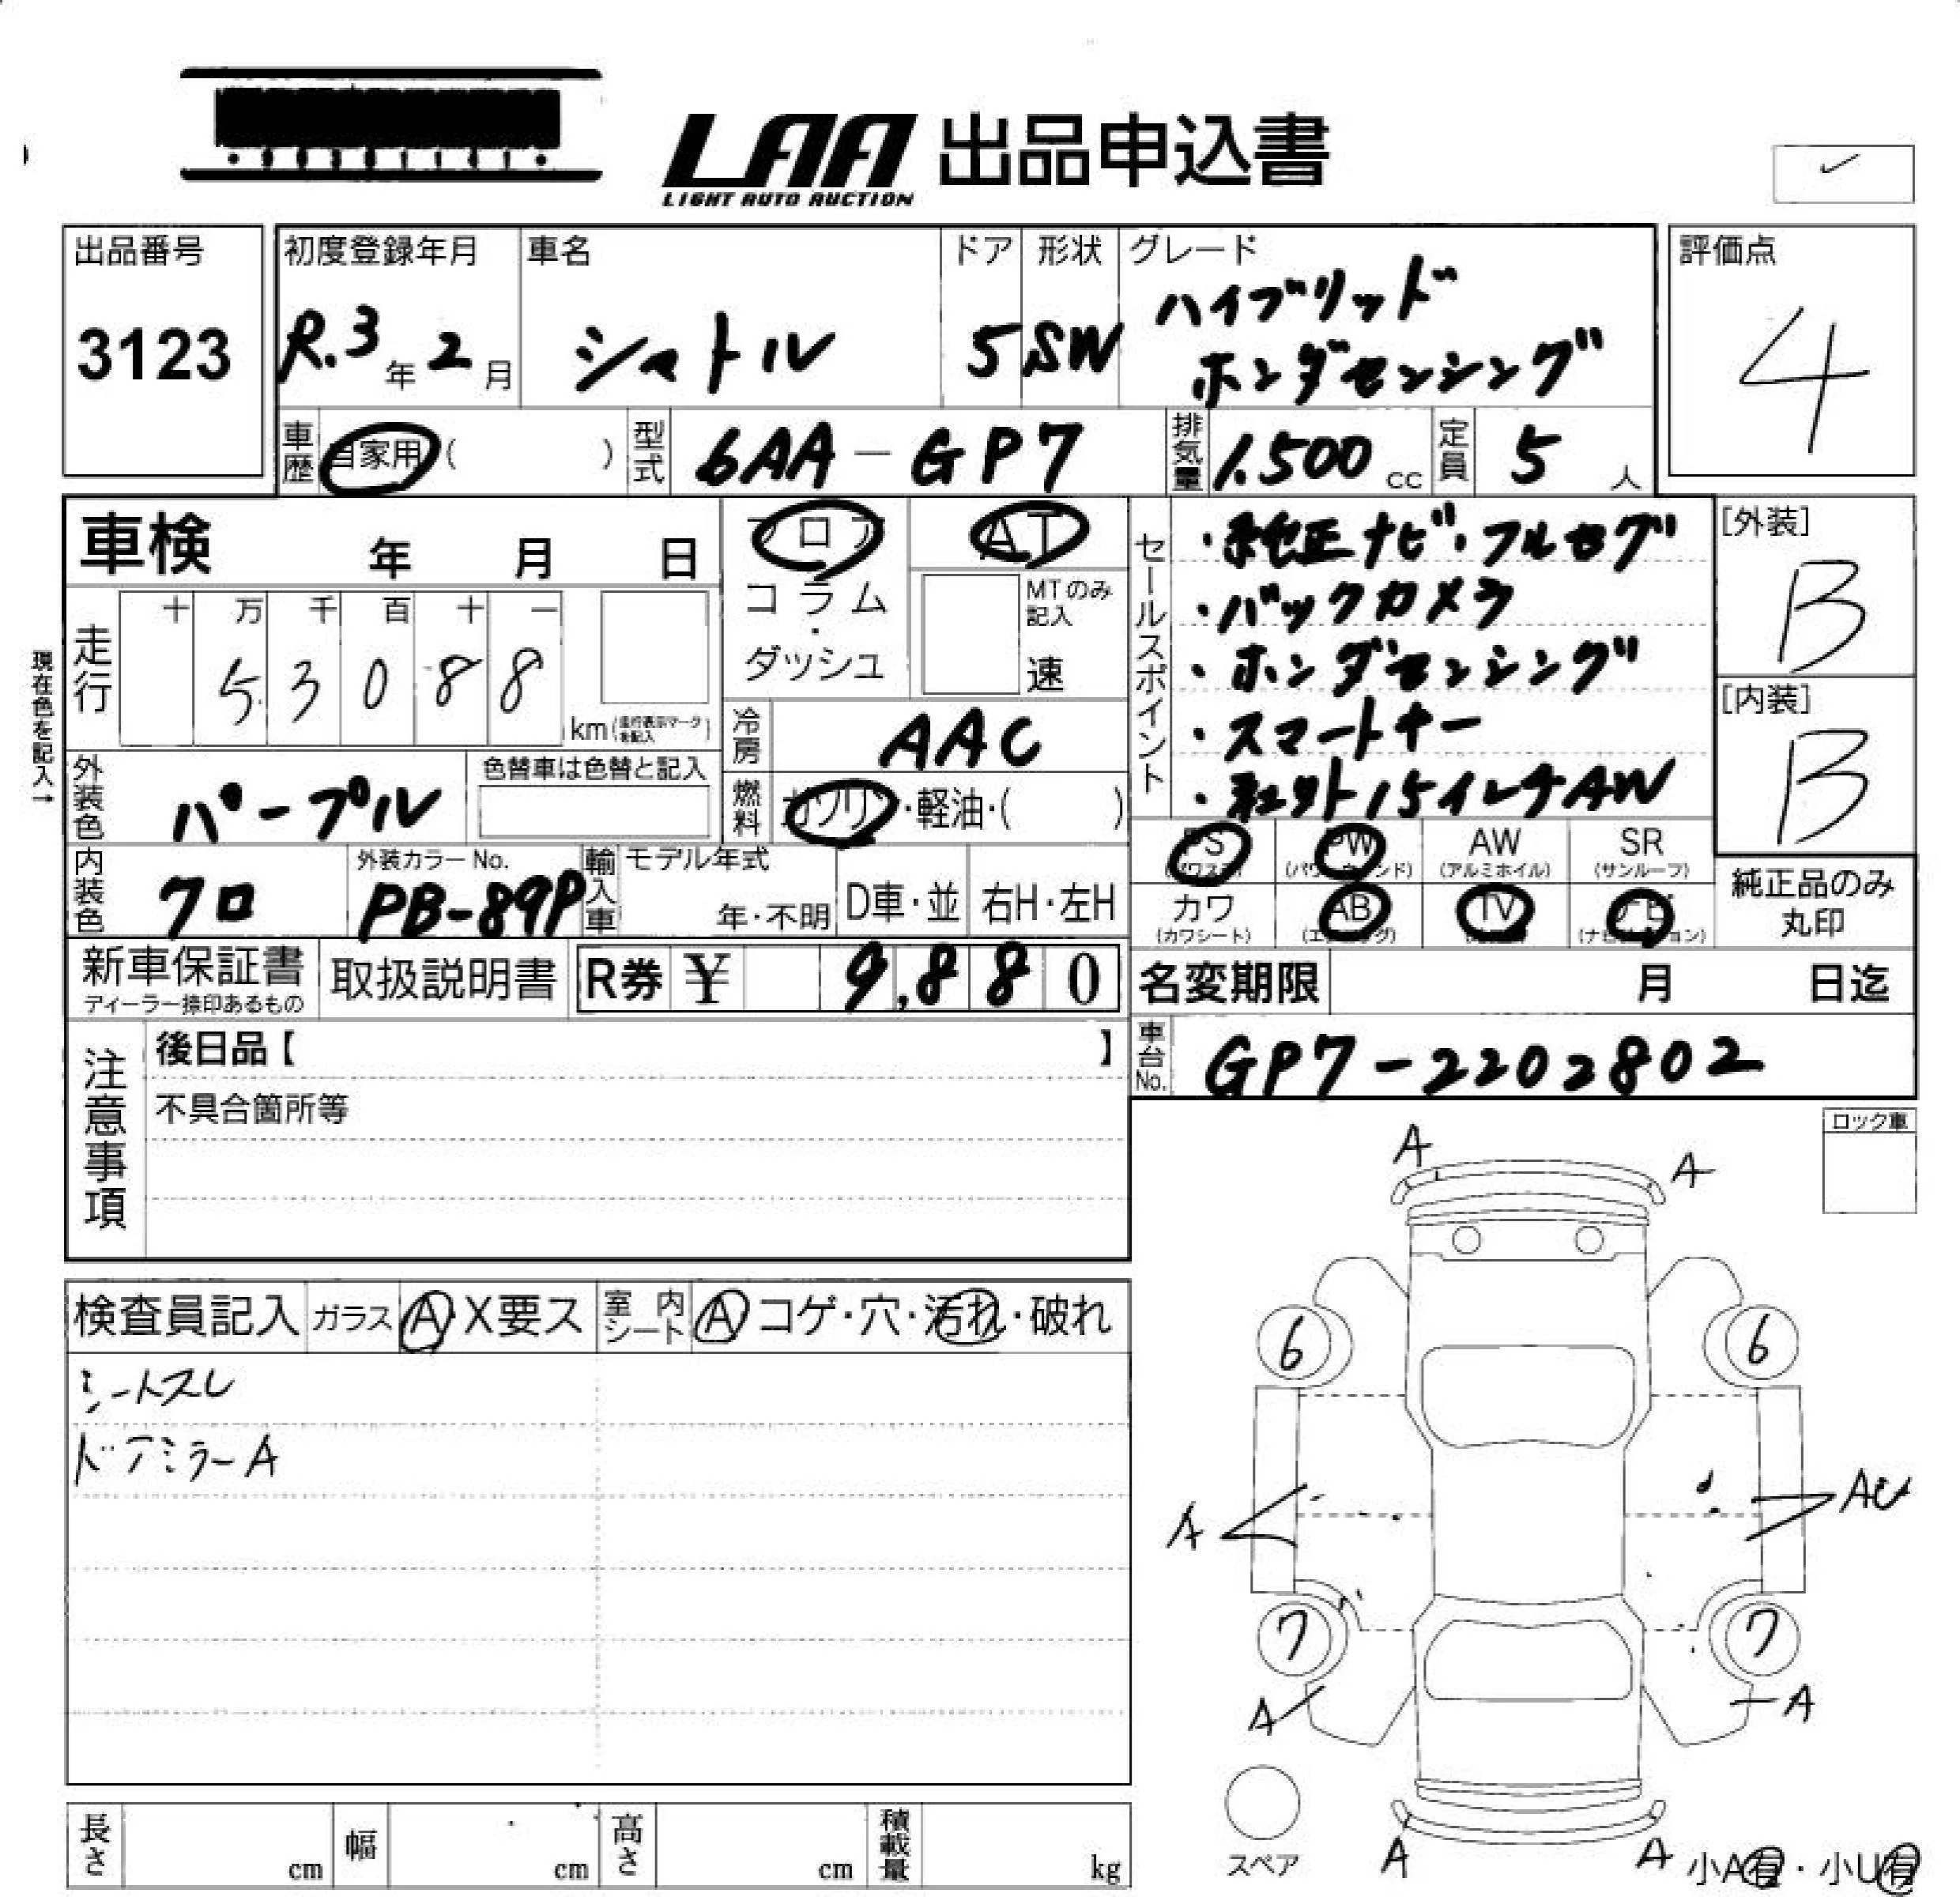 LAA 出品申込書
LIGHT AUTO AUCTION
出品番号
3123
初度登録年月
R.3年2月
車名
シャトル
ドア
5
形状
SW
グレード
ハイブリッド
ホンダセンシング
評価点
4
車歴
自家用( )
型式
6AA-GP7
排気量
1.500 cc
定員
5 人
車検 年 月 日
フロア
コラム
・
ダッシュ
AT
MTのみ
記入
速
現在色を記入→
走行
十 万 千 百 十 一
5 3 0 8 8
km(走行表示マークを記入)
冷房
AAC
外装色
パープル
色替車は色替と記入
燃料
ガソリン・軽油・( )
セールスポイント
・純正ナビ・フルセグ
・バックカメラ
・ホンダセンシング
・スマートキー
・社外15インチAW
[外装]
B
[内装]
B
PS
(パワステ)
PW
(パワーウインド)
AW
(アルミホイル)
SR
(サンルーフ)
カワ
(カワシート)
AB
(エアバッグ)
TV
ナビ
(ナビゲーション)
純正品のみ
丸印
内装色
クロ
外装カラーNo.
PB-89P
輸入車
モデル年式
年・不明
D車・並
右H・左H
新車保証書
ディーラー捺印あるもの
取扱説明書
R券 ¥ 9,880
名変期限 月 日迄
注意事項
後日品【 】
不具合箇所等
車台No.
GP7-2202802
ロック車
検査員記入
ガラス A X要ス
室内シート A コゲ・穴・汚れ・破れ
シートスレ
ドアミラーA
A
A
6
6
A
AU
7
7
A
A
スペア
A
A
小A有・小U有
長さ cm
幅 cm
高さ cm
積載量 kg